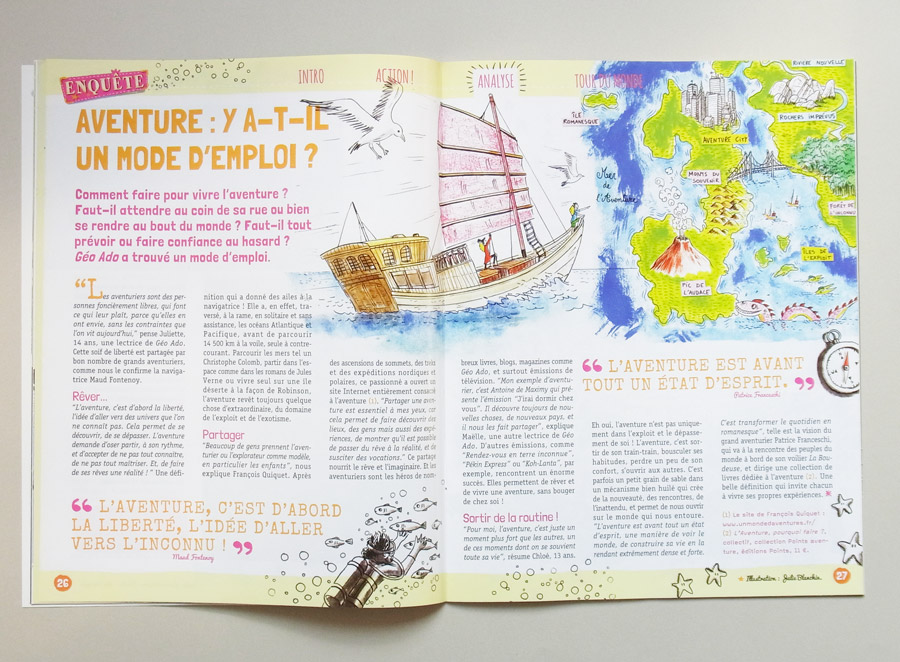 ENQUÊTE
INTRO
ACTION !
ANALYSE
TOUR DU MONDE
AVENTURE : Y A-T-IL
UN MODE D'EMPLOI ?
Comment faire pour vivre l'aventure ?
Faut-il attendre au coin de sa rue ou bien
se rendre au bout du monde ? Faut-il tout
prévoir ou faire confiance au hasard ?
Géo Ado a trouvé un mode d'emploi.
“Les aventuriers sont des per-
sonnes foncièrement libres, qui font
ce qui leur plaît, parce qu'elles en
ont envie, sans les contraintes que
l'on vit aujourd'hui,” pense Juliette,
14 ans, une lectrice de Géo Ado.
Cette soif de liberté est partagée par
bon nombre de grands aventuriers,
comme nous le confirme la naviga-
trice Maud Fontenoy.
Rêver...
“L'aventure, c'est d'abord la liberté,
l'idée d'aller vers des univers que l'on
ne connaît pas. Cela permet de se
découvrir, de se dépasser. L'aventure
demande d'oser partir, à son rythme,
et d'accepter de ne pas tout connaître,
de ne pas tout maîtriser. Et, de faire
de ses rêves une réalité ! ” Une défi-
nition qui a donné des ailes à la
navigatrice ! Elle a, en effet, tra-
versé, à la rame, en solitaire et sans
assistance, les océans Atlantique et
Pacifique, avant de parcourir
14 500 km à la voile, seule à contre-
courant. Parcourir les mers tel un
Christophe Colomb, partir dans l'es-
pace comme dans les romans de Jules
Verne ou vivre seul sur une île
déserte à la façon de Robinson,
l'aventure revêt toujours quelque
chose d'extraordinaire, du domaine
de l'exploit et de l'exotisme.
Partager
“Beaucoup de gens prennent l'aven-
turier ou l'explorateur comme modèle,
en particulier les enfants”, nous
explique François Quiquet. Après
des ascensions de sommets, des treks
et des expéditions nordiques et
polaires, ce passionné a ouvert un
site Internet entièrement consacré
à l'aventure (1). “Partager une aven-
ture est essentiel à mes yeux, car
cela permet de faire découvrir des
lieux, des gens mais aussi des expé-
riences, de montrer qu'il est possible
de passer du rêve à la réalité, et de
susciter des vocations.” Ce partage
nourrit le rêve et l'imaginaire. Et les
aventuriers sont les héros de nom-
“ L'AVENTURE, C'EST D'ABORD
LA LIBERTÉ, L'IDÉE D'ALLER
VERS L'INCONNU ! ”
Maud Fontenoy
26
breux livres, blogs, magazines comme
Géo Ado, et surtout émissions de
télévision. “Mon exemple d'aventu-
rier, c'est Antoine de Maximy qui pré-
sente l'émission “J'irai dormir chez
vous”. Il découvre toujours de nou-
velles choses, de nouveaux pays, et
il nous les fait partager”, explique
Maëlle, une autre lectrice de Géo
Ado. D'autres émissions, comme
“Rendez-vous en terre inconnue”,
“Pékin Express” ou “Koh-Lanta”, par
exemple, rencontrent un énorme
succès. Elles permettent de rêver et
de vivre une aventure, sans bouger
de chez soi !
Sortir de la routine !
“Pour moi, l'aventure, c'est juste un
moment plus fort que les autres, un
de ces moments dont on se souvient
toute sa vie”, résume Chloé, 13 ans.
“ L'AVENTURE EST AVANT
TOUT UN ÉTAT D'ESPRIT. ”
Patrice Franceschi
Eh oui, l'aventure n'est pas unique-
ment dans l'exploit et le dépasse-
ment de soi ! L'aventure, c'est sor-
tir de son train-train, bousculer ses
habitudes, perdre un peu de son
confort, s'ouvrir aux autres. C'est
parfois un petit grain de sable dans
un mécanisme bien huilé qui crée
de la nouveauté, des rencontres, de
l'inattendu, et permet de nous ouvrir
sur le monde qui nous entoure.
“L'aventure est avant tout un état
d'esprit, une manière de voir le
monde, de construire sa vie en la
rendant extrêmement dense et forte.
C'est transformer le quotidien en
romanesque”, telle est la vision du
grand aventurier Patrice Franceschi,
qui va à la rencontre des peuples du
monde à bord de son voilier La Bou-
deuse, et dirige une collection de
livres dédiée à l'aventure (2). Une
belle définition qui invite chacun
à vivre ses propres expériences.
(1) Le site de François Quiquet :
www.unmondedaventures.fr/
(2) L'Aventure, pourquoi faire ?,
collectif, collection Points aven-
ture, éditions Points, 11 €.
Illustration : Julie Blanchin
27
RIVIÈRE NOUVELLE
ÎLE
ROMANESQUE
ROCHERS IMPRÉVUS
AVENTURE CITY
MONTS DU
SOUVENIR
Mer
de
l'Aventure
FORÊT DE
L'INCONNU
ÎLES DE
L'EXPLOIT
PIC DE
L'AUDACE